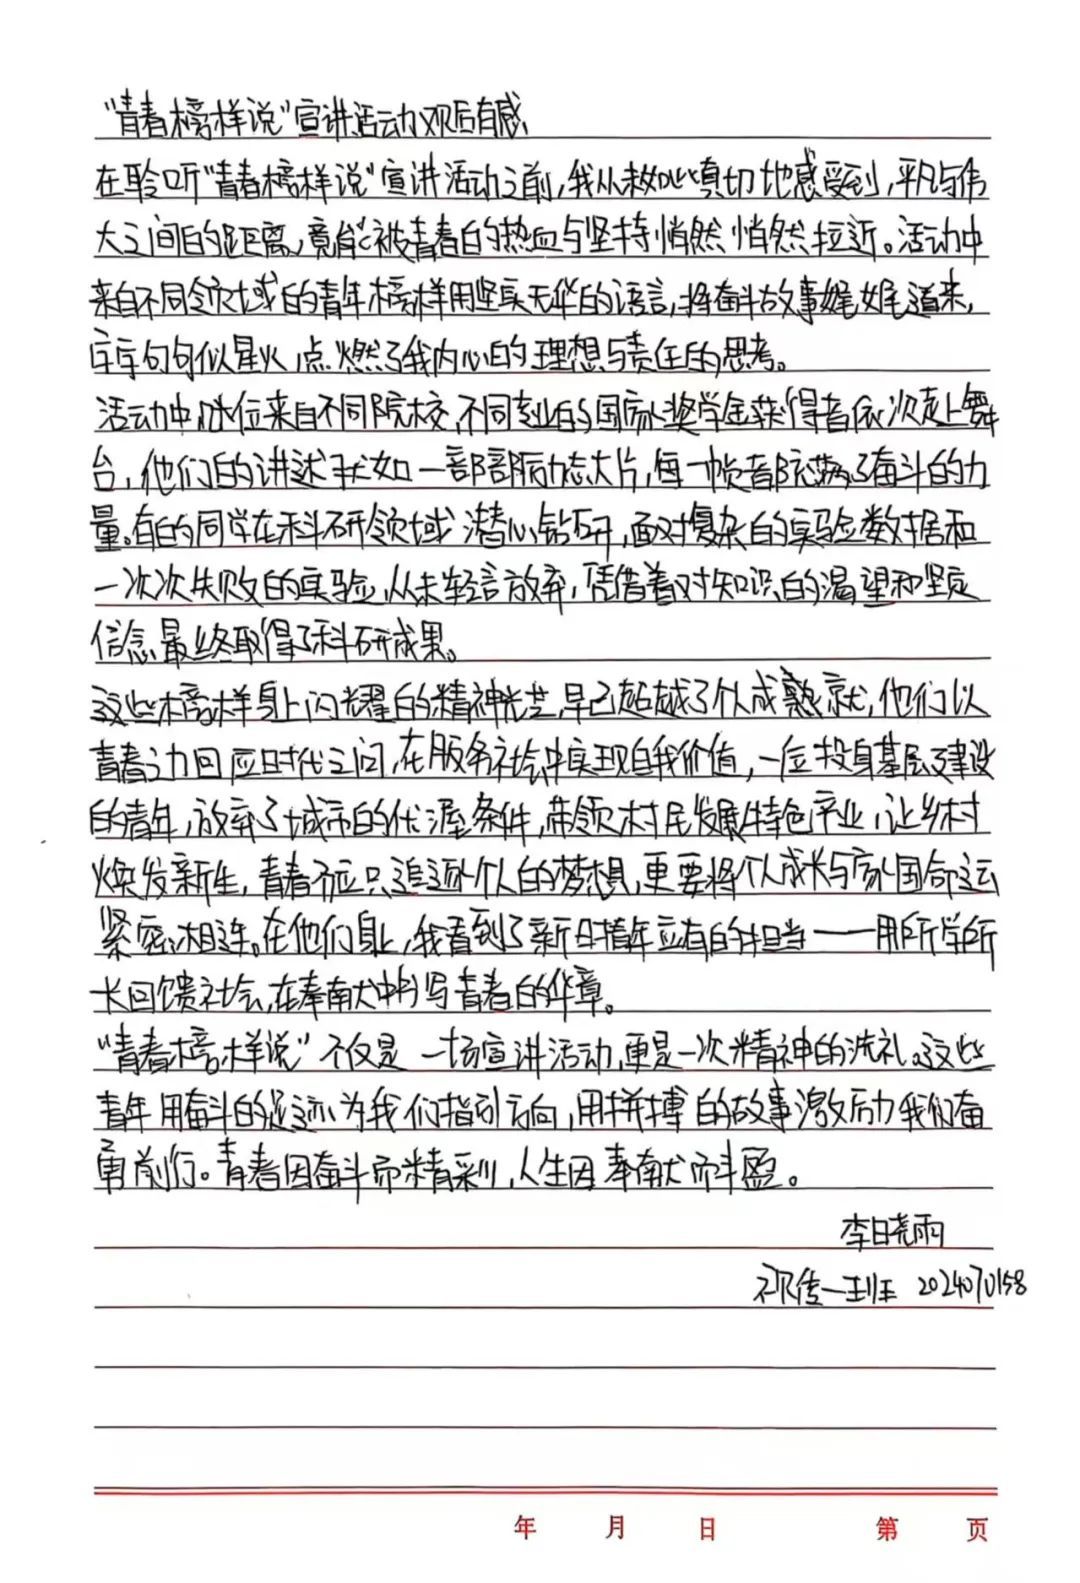 “青春榜样说”宣讲活动观后有感
在聆听“青春榜样说”宣讲活动之前,我从未如此真切地感受到,平凡与伟
大之间的距离,竟能被青春的热血与坚持悄然悄然拉近。活动中
来自不同领域的青年榜样用坚实无华的语言,将奋斗故事娓娓道来,
字字句句似星火,点燃了我内心的理想与责任的思考。
活动中,位来自不同院校、不同专业的国家奖学金获得者依次走上舞
台,他们的讲述犹如一部部励志大片,每一帧都充满了奋斗的力
量。有的同学在科研领域潜心钻研,面对复杂的实验数据和
一次次失败的实验,从未轻言放弃,凭借着对知识的渴望和坚定
信念,最终取得了科研成果。
这些榜样身上闪耀的精神光芒,早已超越了个人成熟就,他们以
青春之力回应时代之问,在服务社会中实现自我价值,一位投身基层建设
的青年,放弃了城市的优渥条件,带领村民发展特色产业,让乡村
焕发新生,青春不应只追逐个人的梦想,更要将个人成长与家国命运
紧密相连。在他们身上,我看到了新时青年应有的担当——用所学所
长回馈社会,在奉献中书写青春的华章。
“青春榜样说”不仅是一场宣讲活动,更是一次精神的洗礼。这些
青年用奋斗的足迹为我们指引方向,用拼搏的故事激励我们奋
勇前行。青春因奋斗而精彩,人生因奉献而丰盈。
李晓雨
视传一班 2024070158
年 月 日 第 页